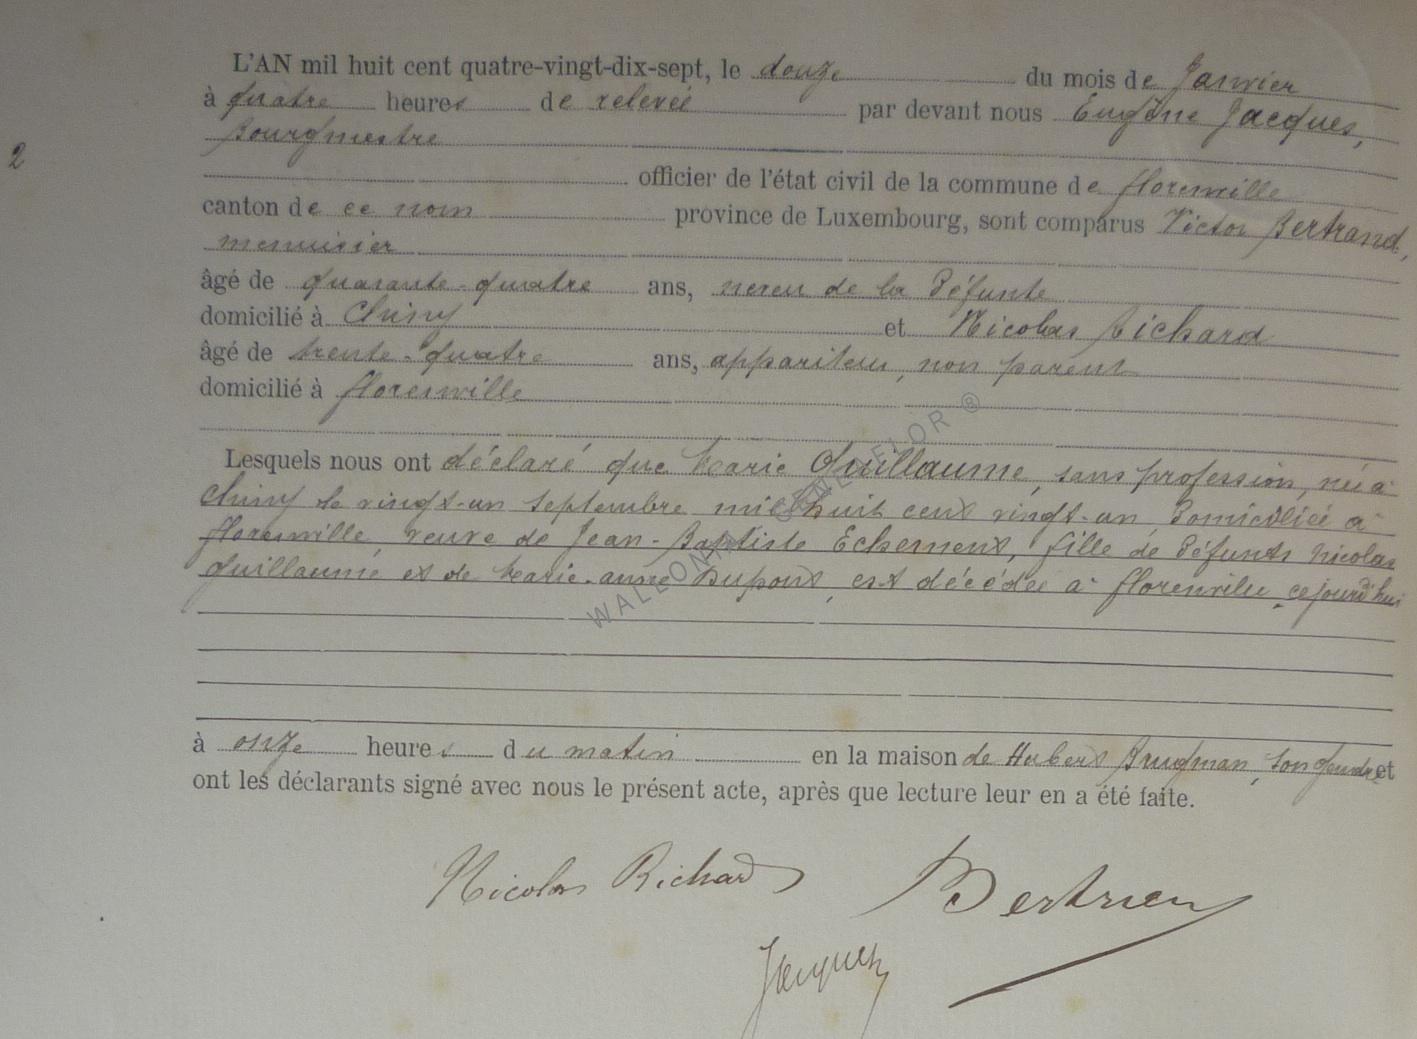 L'AN mil huit cent quatre-vingt-dix-sept, le douze du mois de Janvier
à quatre heures de relevée par devant nous Eugène Jacques,
Bourgmestre
2
officier de l'état civil de la commune de florenville
canton de ce nom province de Luxembourg, sont comparus Victor Bertrand,
menuisier
âgé de quarante-quatre ans, neveu de la défunte
domicilié à Chiny et Nicolas Richard
âgé de trente-quatre ans, appariteur, non parent
domicilié à florenville
Lesquels nous ont déclaré que Marie Guillaume, sans profession, née à
Chiny le vingt-un septembre mil huit cent vingt-un domiciliée à
florenville, veuve de Jean-Baptiste Echement, fille de défunts Nicolas
Guillaume et de Marie-anne Dupont, est décédée à florenville, cejourd'hui
à onze heures du matin en la maison de Hubert Brugman, son gendre et
ont les déclarants signé avec nous le présent acte, après que lecture leur en a été faite.
Nicolas Richard
Jacques
WALLONIA GENE FLOR ®